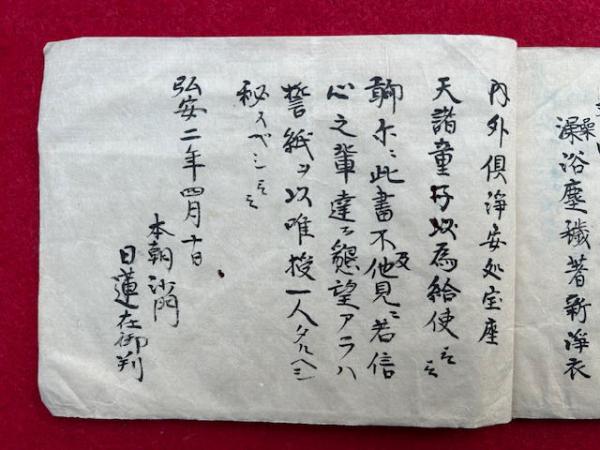 澡浴塵穢著新淨衣
内外倶淨安処宝座
天諸童子以為給使云云
聊尓ニ此書不及他見ニ若信
心之輩達テ懇望アラハ
誓紙ヲ以唯授一人タルヘシ
秘スヘシ云云
弘安二年四月十日
本朝沙門
日蓮在御判